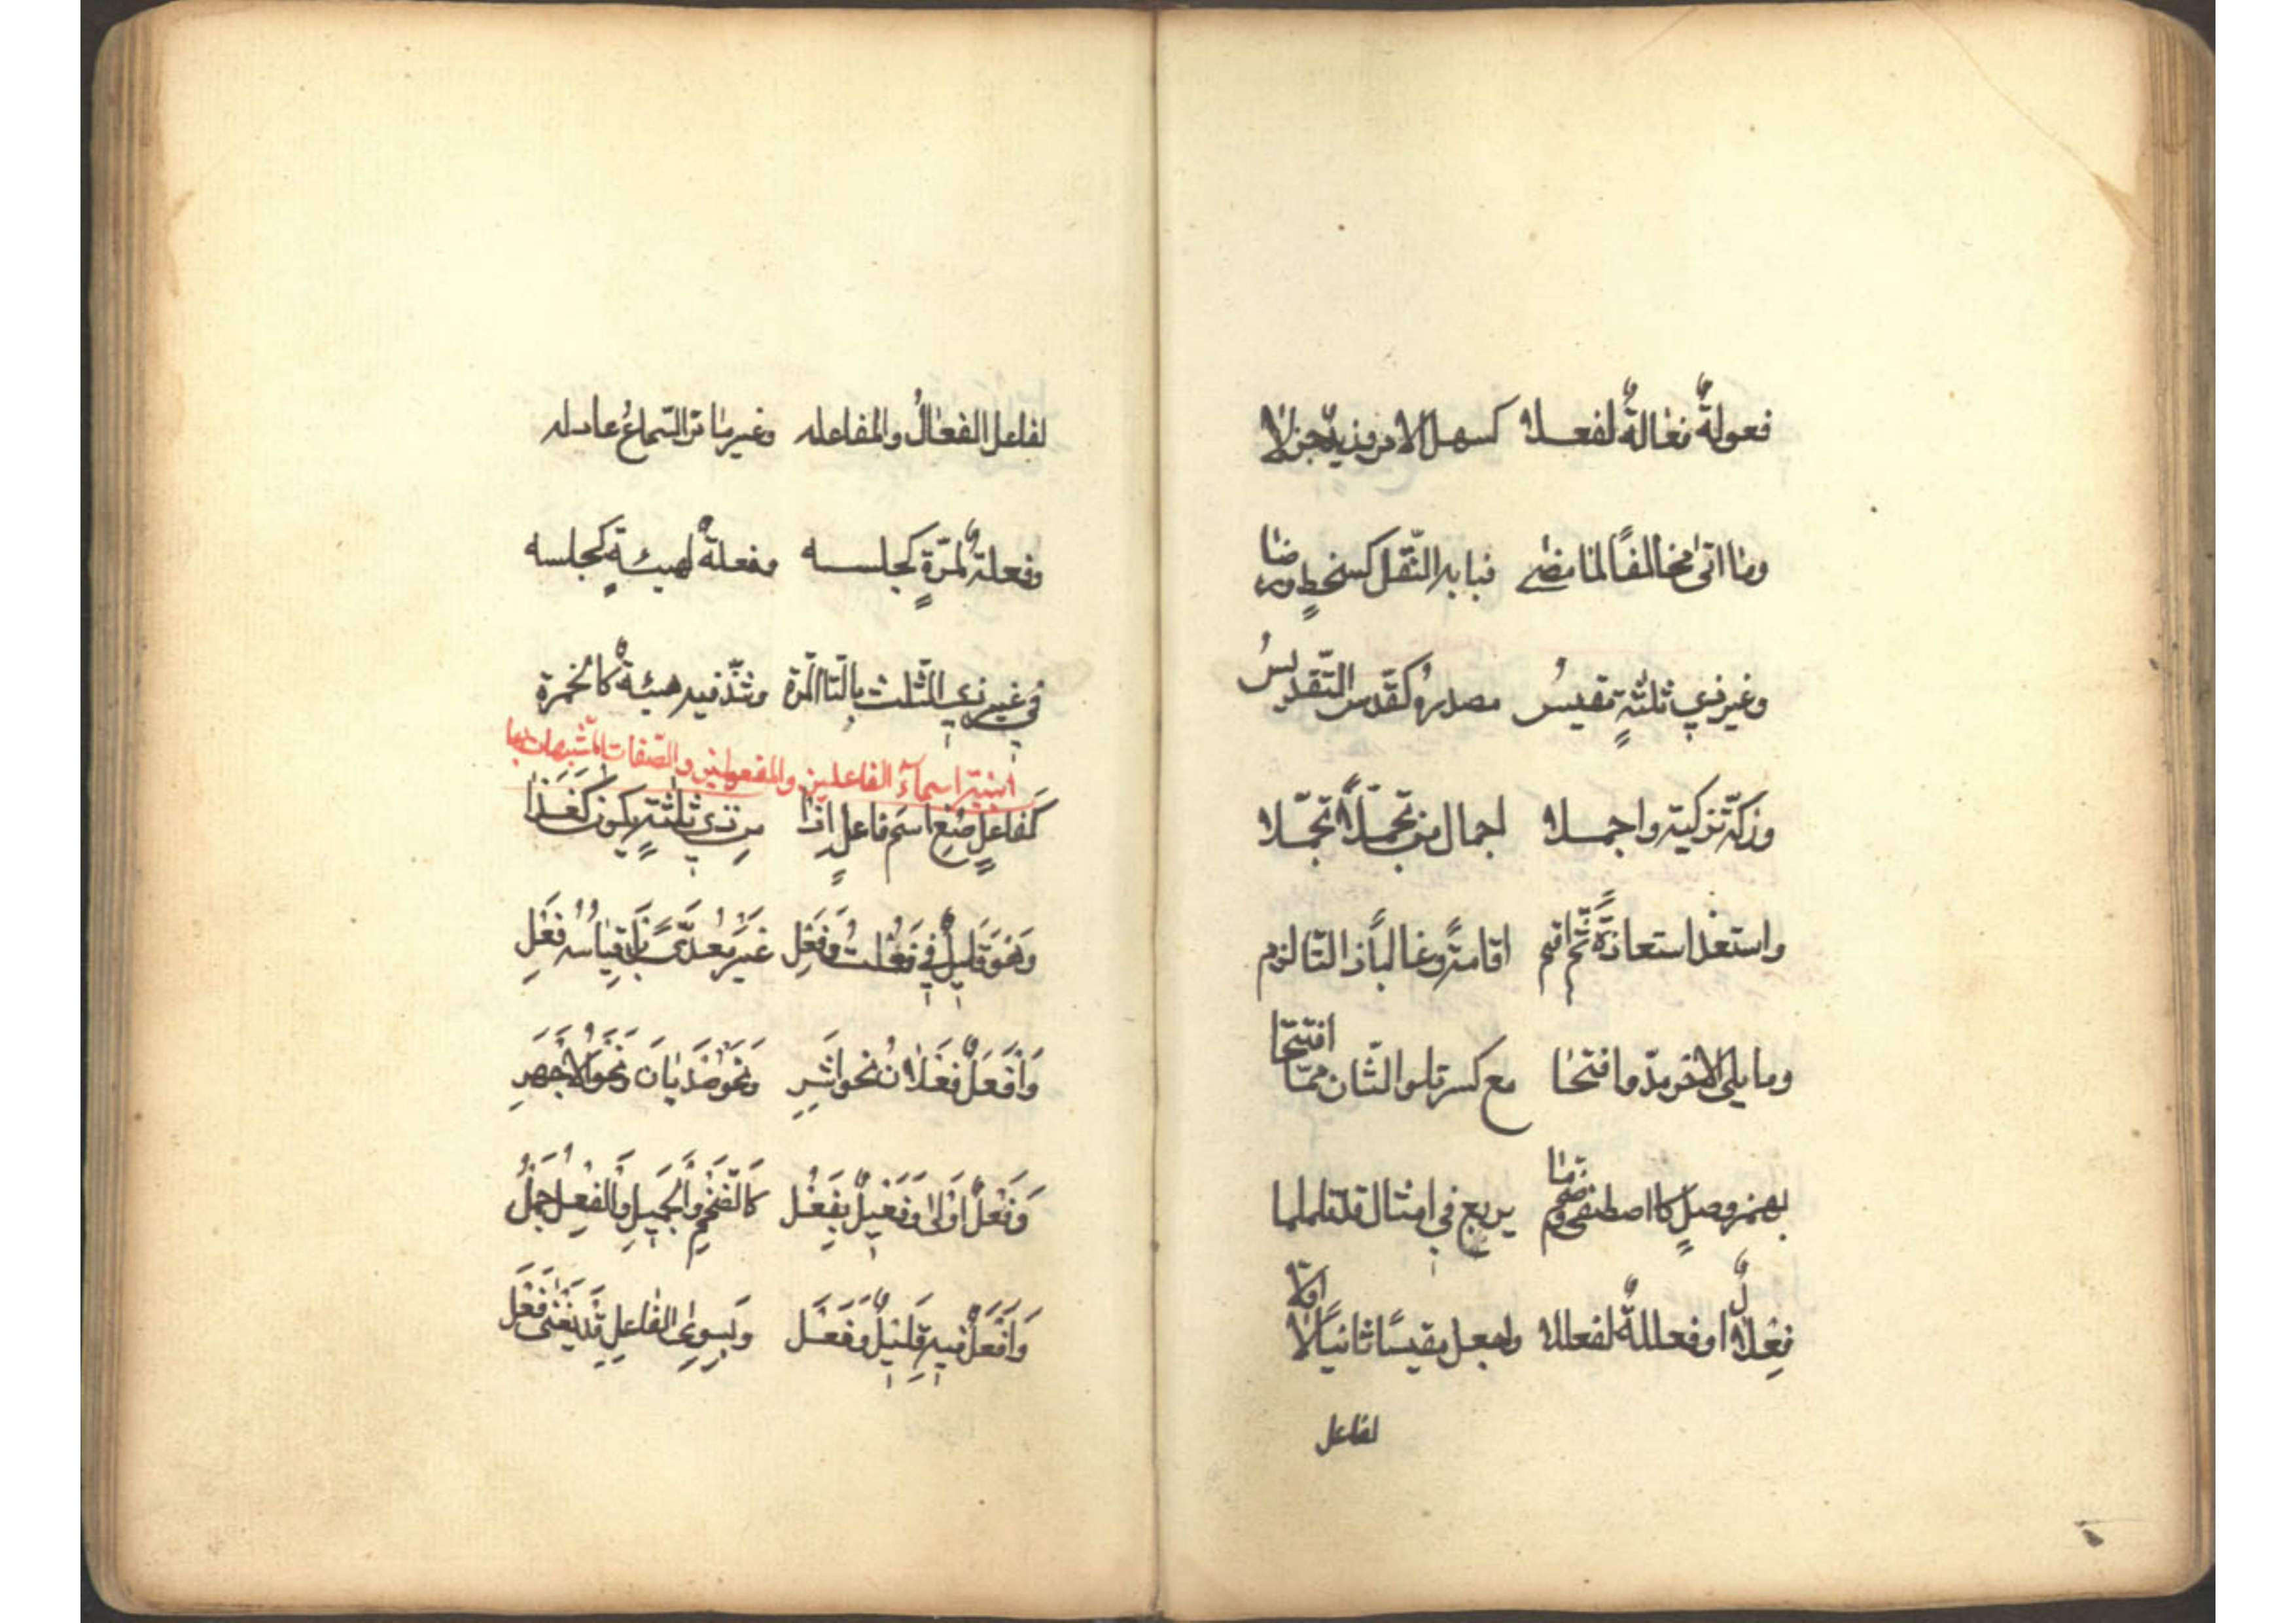 فعولةٌ فعالةٌ لفعلا كسهل الامر وزيدٌ جزلا
وما اتى مخالفًا لما مضى فبابه النّقل كسخطٍ ورضا
وغير ذي ثلثةٍ مقيسُ مصدره كقدّس التّقديسُ
وزكّه تزكيته واجملا اجمال من تجمّلاً تجمّلا
واستعذ استعاذةً ثمّ اقم اقامةً وغالباً ذا التا لزم
وما يلي الاخر مدّ وافتحا مع كسر تلو الثّان ممّا افتتحا
بهمز وصلٍ كاصطفى وضمّ ما يربع في امثال قد تلملما
فِعلالٌ اوفعللةٌ لفعللا واجعل مقيسًا ثانيًا لا اوّلا
لفاعل
لفاعل الفعالُ والمفاعله وغير ما مرّ السّماعُ عادله
وفعلةٌ لمرّةٍ كجلسه وفعلةٌ لهيئةٍ كجلسه
في غير ذي الثّلث بالتّا المرّة وشذّ فيه هيئةٌ كالخمرة
ابنية اسمآء الفاعلين والمفعولين والصّفات المشبهات بها
كَفاعلٍ صُغِ اسمَ فاعلٍ اذا من ذي ثلثةٍ يكون كَغَذَا
وَهُوَ قَليلٌ في فَعُلت وفَعِل غيرَ معدّىً بَل قياسُه فَعِل
وَاَفعَلٌ فَعلانُ نحو اَشِرِ ونَحو صَديانَ ونَحو الاَجهَرِ
وَفَعلٌ اَولى وَفَعيلٌ بِفَعُل كالضّخمِ والجَميلِ والفِعلُ جَمُل
وَاَفعَلٌ فيه قَليلٌ وفَعَل وَبِسوى الفاعِلِ قد يَغنى فَعَل